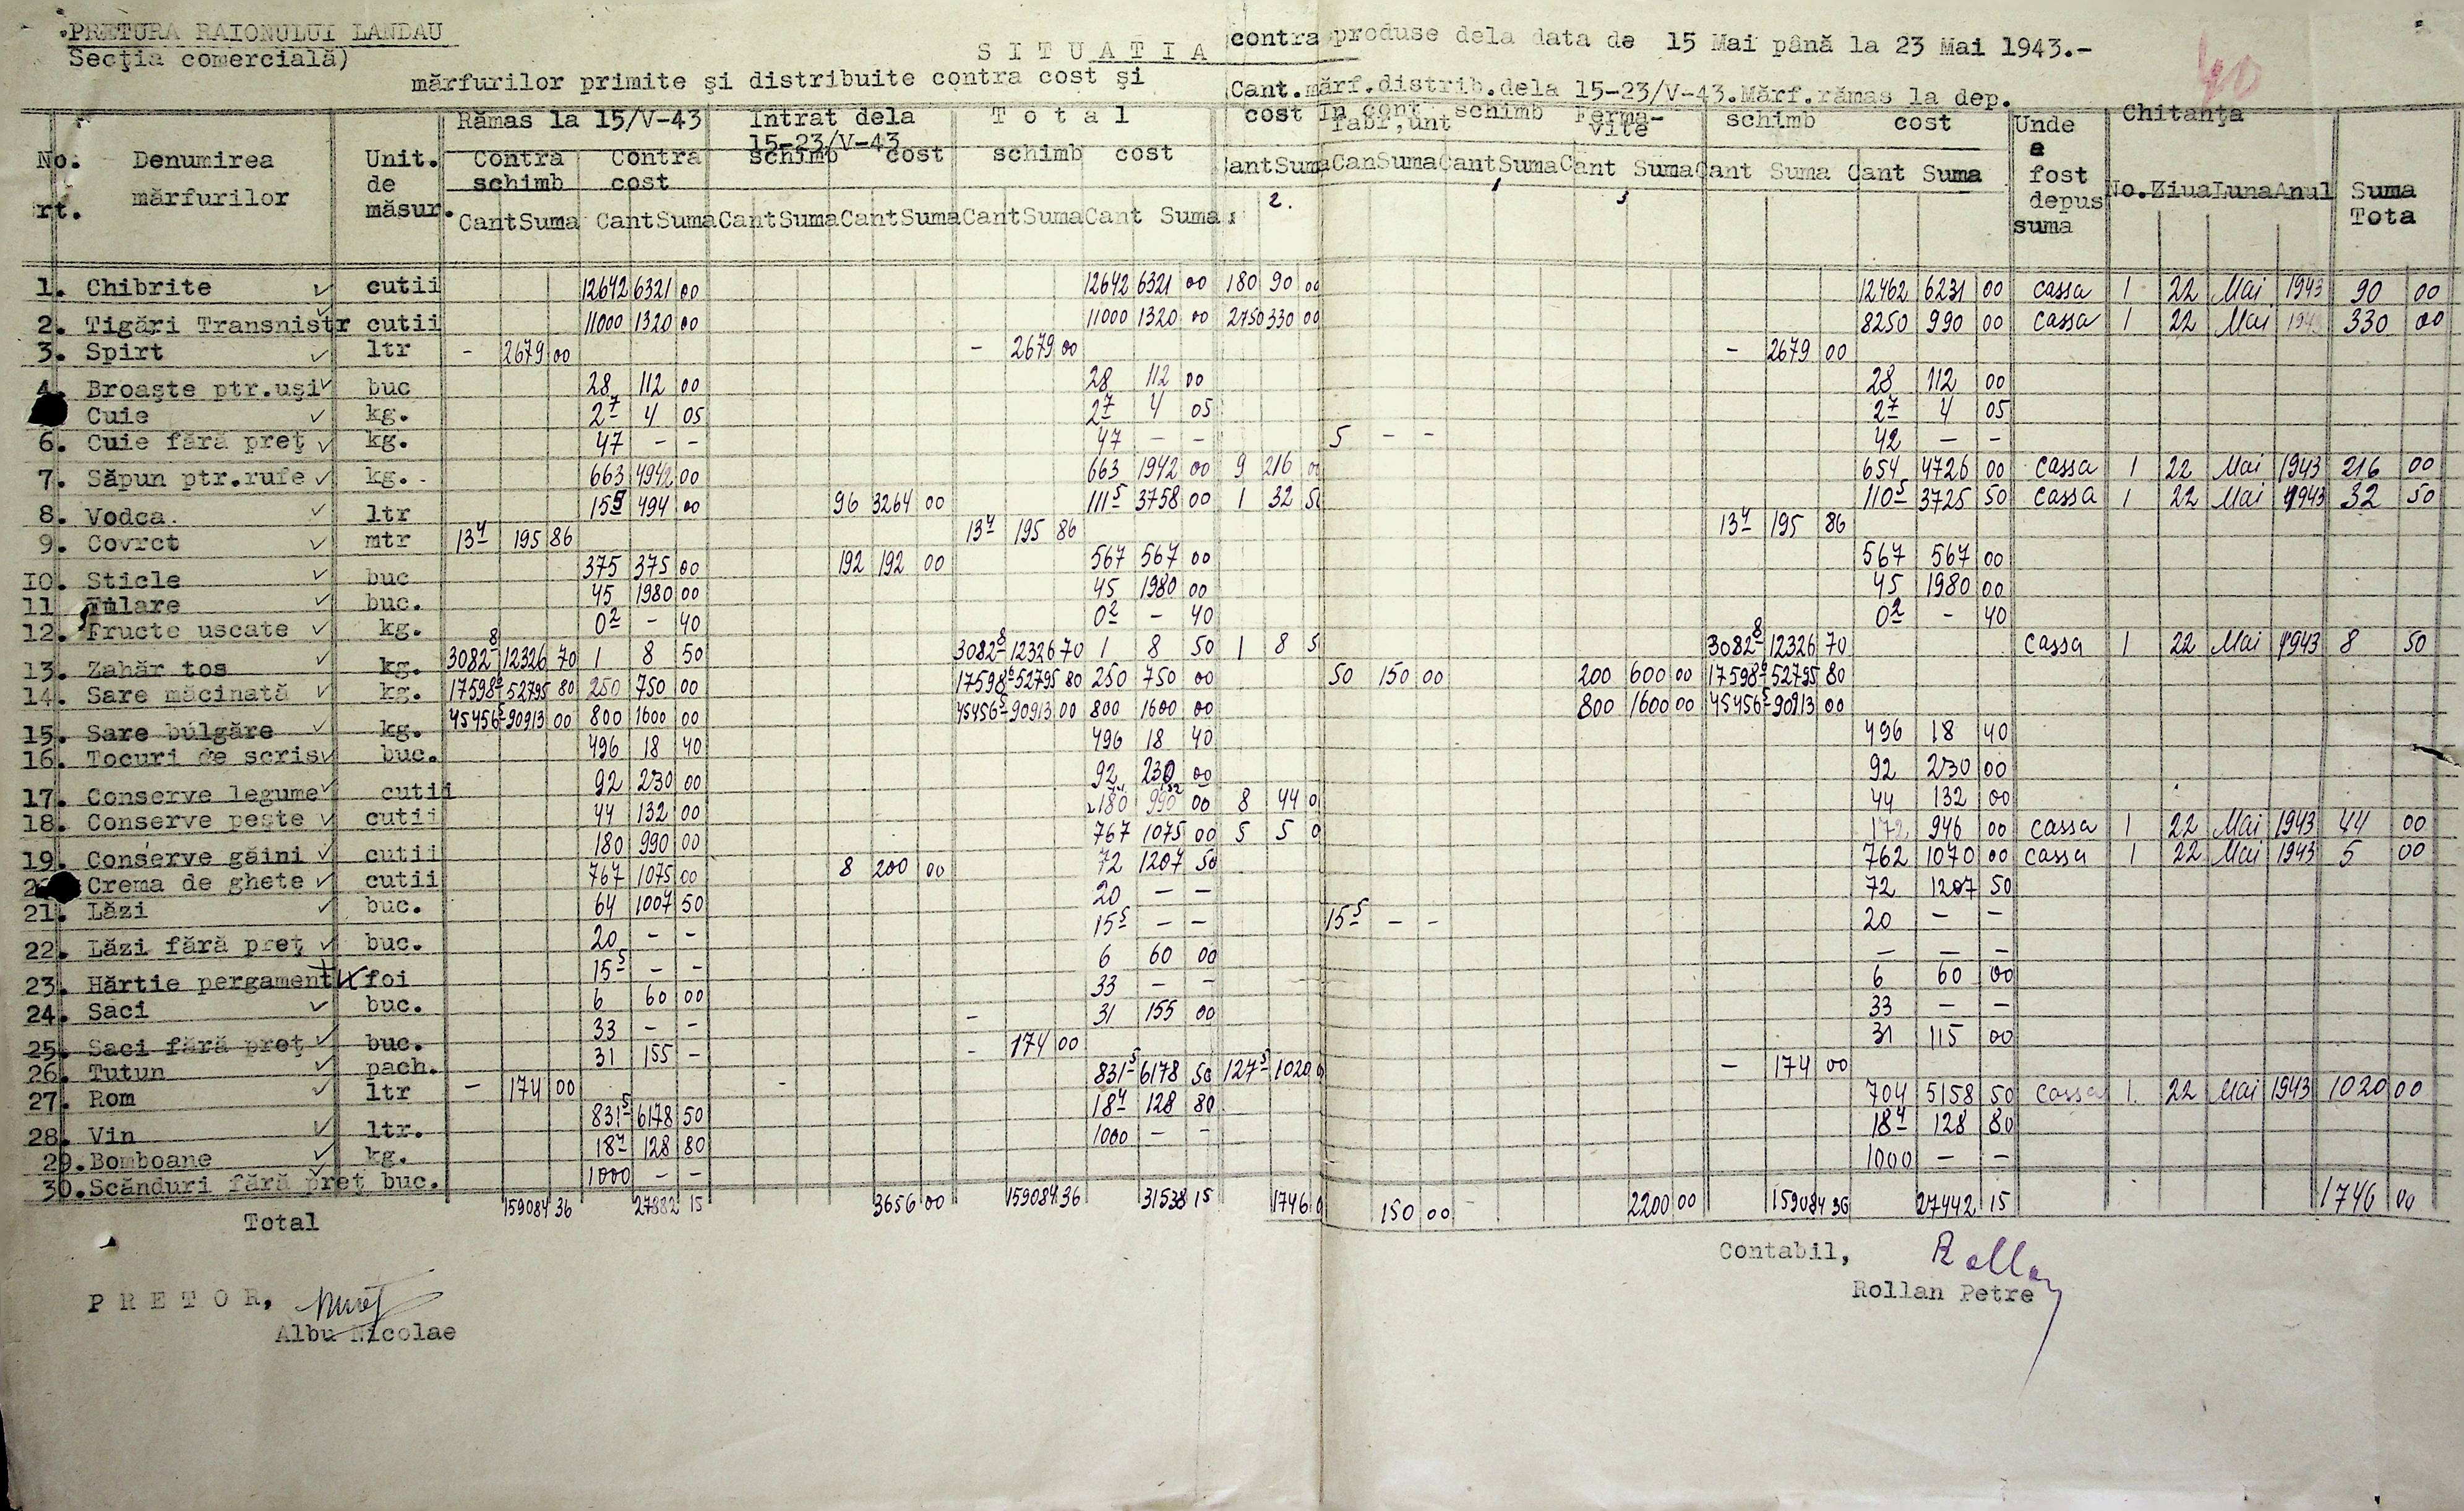 PRETURA RAIONULUI LANDAU
Secţia comercială)
S I T U A Ţ I A contra produse dela data de 15 Mai până la 23 Mai 1943.-
mărfurilor primite şi distribuite contra cost şi
Cant.mărf.distrib.dela 15-23/V-43.Mărf.rămas la dep.
40
No. rt. Denumirea mărfurilor Unit. de măsur. Rămas la 15/V-43 Intrat dela 15-23/V-43 T o t a l cost In cont schimb Fabr,unt Ferma- vite schimb cost Unde a fost depus suma Chitanţa Suma Tota
Contra schimb Contra cost schimb cost schimb cost
Cant Suma Cant Suma Cant Suma Cant Suma Cant Suma Cant Suma
Cant Suma Can Suma Cant Suma Cant Suma Cant Suma Cant Suma No. Ziua Luna Anul
2. 1 3
1. Chibrite cutii 12642 6321 00 12642 6321 00 180 90 00 12462 6231 00 cassa 1 22 Mai 1943 90 00
2. Tigări Transnistr cutii 11000 1320 00 11000 1320 00 2750 330 00 8250 990 00 cassa 1 22 Mai 1943 330 00
3. Spirt ltr - 2679 00 - 2679 00 - 2679 00
4. Broaşte ptr.uşi buc 28 112 00 28 112 00 28 112 00
Cuie kg. 2 7 4 05 2 7 4 05 2 7 4 05
6. Cuie fără preţ kg. 47 - - 47 - - 5 - - 42 - -
7. Săpun ptr.rufe kg. 663 4942 00 663 1942 00 9 216 00 654 4726 00 cassa 1 22 Mai 1943 216 00
8. Vodca. ltr 15 5 494 00 96 3264 00 111 5 3758 00 1 32 50 110 5 3725 50 cassa 1 22 Mai 1943 32 50
9. Covrct mtr 13 4 195 86 13 4 195 86 13 4 195 86
10. Sticle buc 375 375 00 192 192 00 567 567 00 567 567 00
11 Tulare buc. 45 1980 00 45 1980 00 45 1980 00
12. Fructe uscate kg. 0 2 - 40 0 2 - 40 0 2 - 40
13. Zahăr tos kg. 3082 8 12326 70 1 8 50 3082 8 12326 70 1 8 50 1 8 5 3082 8 12326 70 cassa 1 22 Mai 1943 8 50
14. Sare măcinată kg. 17598 6 52795 80 250 750 00 17598 6 52795 80 250 750 00 50 150 00 200 600 00 17598 6 52795 80
15. Sare bulgăre kg. 45456 5 90913 00 800 1600 00 45456 5 90913 00 800 1600 00 800 1600 00 45456 5 90913 00
16. Tocuri de scris buc. 496 18 40 496 18 40 496 18 40
17. Conserve legume cutii 92 230 00 92 230 00 92 230 00
18. Conserve peşte cutii 44 132 00 44 132 44 132 00
19. Conserve găini cutii 180 990 00 180 990 00 8 44 0 172 946 00 cassa 1 22 Mai 1943 44 00
2 Crema de ghete cutii 767 1075 00 767 1075 00 5 5 0 762 1070 00 cassa 1 22 Mai 1943 5 00
21. Lăzi buc. 64 1007 50 8 200 00 72 1207 50 72 1207 50
22. Lăzi fără preţ buc. 20 - - 20 - - 20 - -
23. Hărtie pergament foi 15 5 - - 15 5 - - 15 5 - - - - -
24. Saci buc. 6 60 00 6 60 00 6 60 00
25. Saci fără preţ buc. 33 - - 33 - - 33 - -
26. Tutun pach. 31 155 - - 31 155 00 31 115 00
27. Rom ltr - 174 00 - - 174 00 - 174 00
28. Vin ltr. 831 5 6178 50 831 5 6178 50 127 5 1020 0 704 5158 50 cassa 1. 22 Mai 1943 1020 00
29. Bomboane kg. 18 4 128 80 18 4 128 80 18 4 128 80
30. Scănduri fără preţ buc. 1000 - - 1000 - - 1000 - -
Total 159084 36 27882 15 3656 00 159084 36 31538 15 1746 0 150 00 - 2200 00 159084 36 27442 15 1746 00
P R E T O R,
Albu Nicolae
Contabil,
Rollan
Rollan Petre